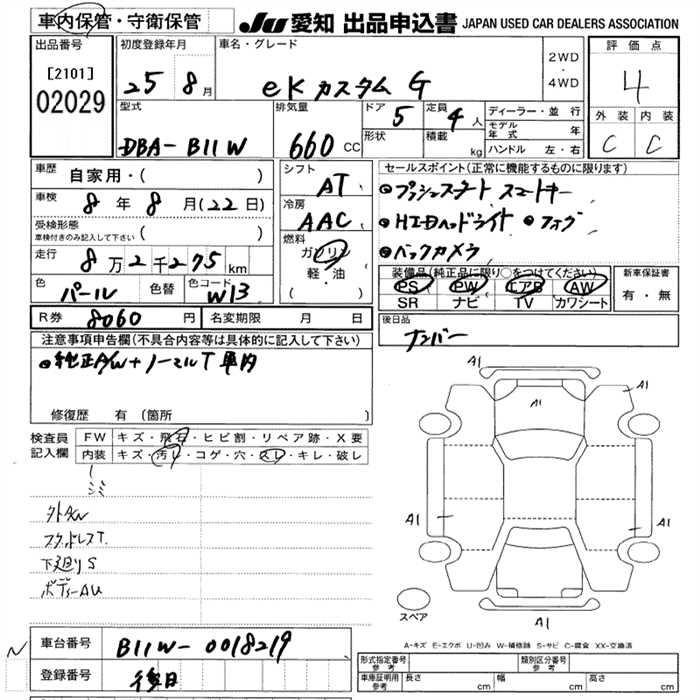 車内保管・守衛保管
JU 愛知 出品申込書 JAPAN USED CAR DEALERS ASSOCIATION
出品番号
[2101]
02029
初度登録年月
25 8月
車名・グレード
eKカスタム G
2WD
・
4WD
評価点
4
外装 内装
C C
型式
DBA-B11W
排気量
660 CC
ドア 5
形状
定員 4人
積載 kg
ディーラー・並行
モデル年式 年
ハンドル 左・右
車歴 自家用・( )
車検 8年8月(22日)
受検形態
車検付きのみ記入して下さい ( )
走行 8万2千275km
色 パール 色替 色コード W13
シフト
AT
冷房
AAC
燃料
ガソリン
軽・油
( )
セールスポイント(正常に機能するものに限ります)
●プッシュスタート スマートキー
●HIDヘッドライト ●フォグ
●バックカメラ
装備品(純正品に限り○をつけてください)
PS PW エアB AW
SR ナビ TV カワシート
新車保証書
有・無
R券 8060円 名変期限 月 日
後日品
ナンバー
注意事項申告欄(不具合内容等は具体的に記入して下さい)
●純正A/W+ノーマルT 車内
修復歴 有(箇所 )
検査員
記入欄
FW キズ・飛石・ヒビ割・リペア跡・X要
内装 キズ・汚レ・コゲ・穴・スレ・キレ・破レ
シミ
外AW
下廻りS
ボディーAU
A1
A1
A1
A1
A1
A1
スペア
A-キズ E-エクボ U-凹み W-補修跡 S-サビ C-腐食 XX-交換済
車台番号 B11W-0018219
登録番号 後日
形式指定番号
参考
類別区分番号
参考
車庫証明用
参考
長さ cm 幅 cm 高さ cm